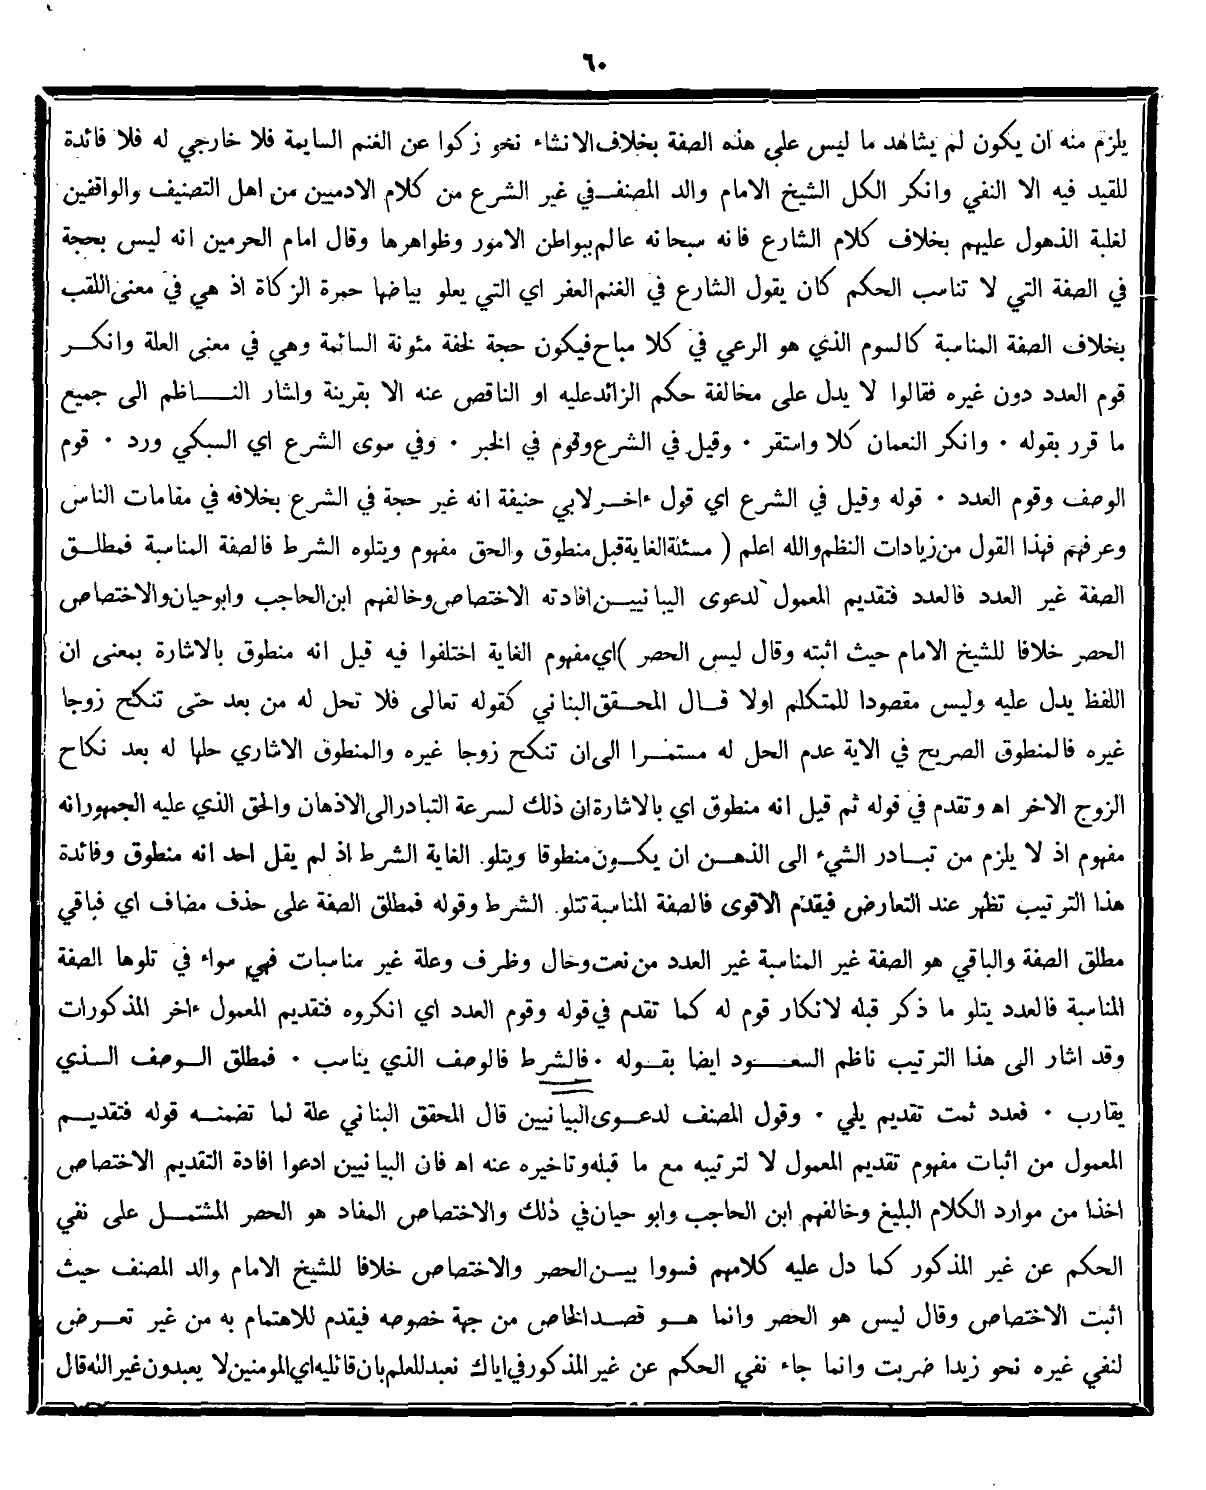 ٦٠
يلزم منه ان يكون لم يشاهد ما ليس على هذه الصفة بخلاف الانشاء نحو زكوا عن الغنم السايمة فلا خارجي له فلا فائدة
للقيد فيه الا النفي وانكر الكل الشيخ الامام والد المصنف في غير الشرع من كلام الادميين من اهل التصنيف والواقفين
لغلبة الذهول عليهم بخلاف كلام الشارع فانه سبحانه عالم ببواطن الامور وظواهرها وقال امام الحرمين انه ليس بحجة
في الصفة التي لا تناسب الحكم كان يقول الشارع في الغنم العفر اي التي يعلو بياضها حمرة الزكاة اذ هي في معنى اللقب
بخلاف الصفة المناسبة كالسوم الذي هو الرعي في كلا مباح فيكون حجة لخفة مئونة السائمة وهي في معنى العلة وانكر
قوم العدد دون غيره فقالوا لا يدل على مخالفة حكم الزائد عليه او الناقص عنه الا بقرينة واشار الناظم الى جميع
ما قرر بقوله ٠ وانكر النعمان كلا واستقر ٠ وقيل في الشرع وقوم في الخبر ٠ وفي سوى الشرع اي السبكي ورد ٠ قوم
الوصف وقوم العدد ٠ قوله وقيل في الشرع اي قول ءاخر لابي حنيفة انه غير حجة في الشرع بخلافه في مقامات الناس
وعرفهم فهذا القول من زيادات النظم والله اعلم ( مسئلة الغاية قيل منطوق والحق مفهوم ويتلوه الشرط فالصفة المناسبة فمطلق
الصفة غير العدد فالعدد فتقديم المعمول لدعوى البيانيين افادته الاختصاص وخالفهم ابن الحاجب وابو حيان والاختصاص
الحصر خلافا للشيخ الامام حيث اثبته وقال ليس الحصر ) اي مفهوم الغاية اختلفوا فيه قيل انه منطوق بالاشارة بمعنى ان
اللفظ يدل عليه وليس مقصودا للمتكلم اولا قال المحقق البناني كقوله تعالى فلا تحل له من بعد حتى تنكح زوجا
غيره فالمنطوق الصريح في الاية عدم الحل له مستمرا الى ان تنكح زوجا غيره والمنطوق الاشاري حلها له بعد نكاح
الزوج الاخر اه وتقدم في قوله ثم قيل انه منطوق اي بالاشارة ان ذلك لسرعة التبادر الى الاذهان والحق الذي عليه الجمهور انه
مفهوم اذ لا يلزم من تبادر الشيء الى الذهن ان يكون منطوقا ويتلو الغاية الشرط اذ لم يقل احد انه منطوق وفائدة
هذا الترتيب تظهر عند التعارض فيقدم الاقوى فالصفة المناسبة تتلو الشرط وقوله فمطلق الصفة على حذف مضاف اي فباقي
مطلق الصفة والباقي هو الصفة غير المناسبة غير العدد من نعت وحال وظرف وعلة غير مناسبات فهي سواء في تلوها الصفة
المناسبة فالعدد يتلو ما ذكر قبله لانكار قوم له كما تقدم في قوله وقوم العدد اي انكروه فتقديم المعمول ءاخر المذكورات
وقد اشار الى هذا الترتيب ناظم السعود ايضا بقوله ٠ فالشرط فالوصف الذي يناسب ٠ فمطلق الوصف الذي
يقارب ٠ فعدد ثمت تقديم يلي ٠ وقول المصنف لدعوى البيانيين قال المحقق البناني علة لما تضمنه قوله فتقديم
المعمول من اثبات مفهوم تقديم المعمول لا لترتيبه مع ما قبله وتاخيره عنه اه فان البيانيين ادعوا افادة التقديم الاختصاص
اخذا من موارد الكلام البليغ وخالفهم ابن الحاجب وابو حيان في ذلك والاختصاص المفاد هو الحصر المشتمل على نفي
الحكم عن غير المذكور كما دل عليه كلامهم فسووا بين الحصر والاختصاص خلافا للشيخ الامام والد المصنف حيث
اثبت الاختصاص وقال ليس هو الحصر وانما هو قصد الخاص من جهة خصوصه فيقدم للاهتمام به من غير تعرض
لنفي غيره نحو زيدا ضربت وانما جاء نفي الحكم عن غير المذكور في اياك نعبد للعلم بان قائليه اي المومنين لا يعبدون غير الله قال